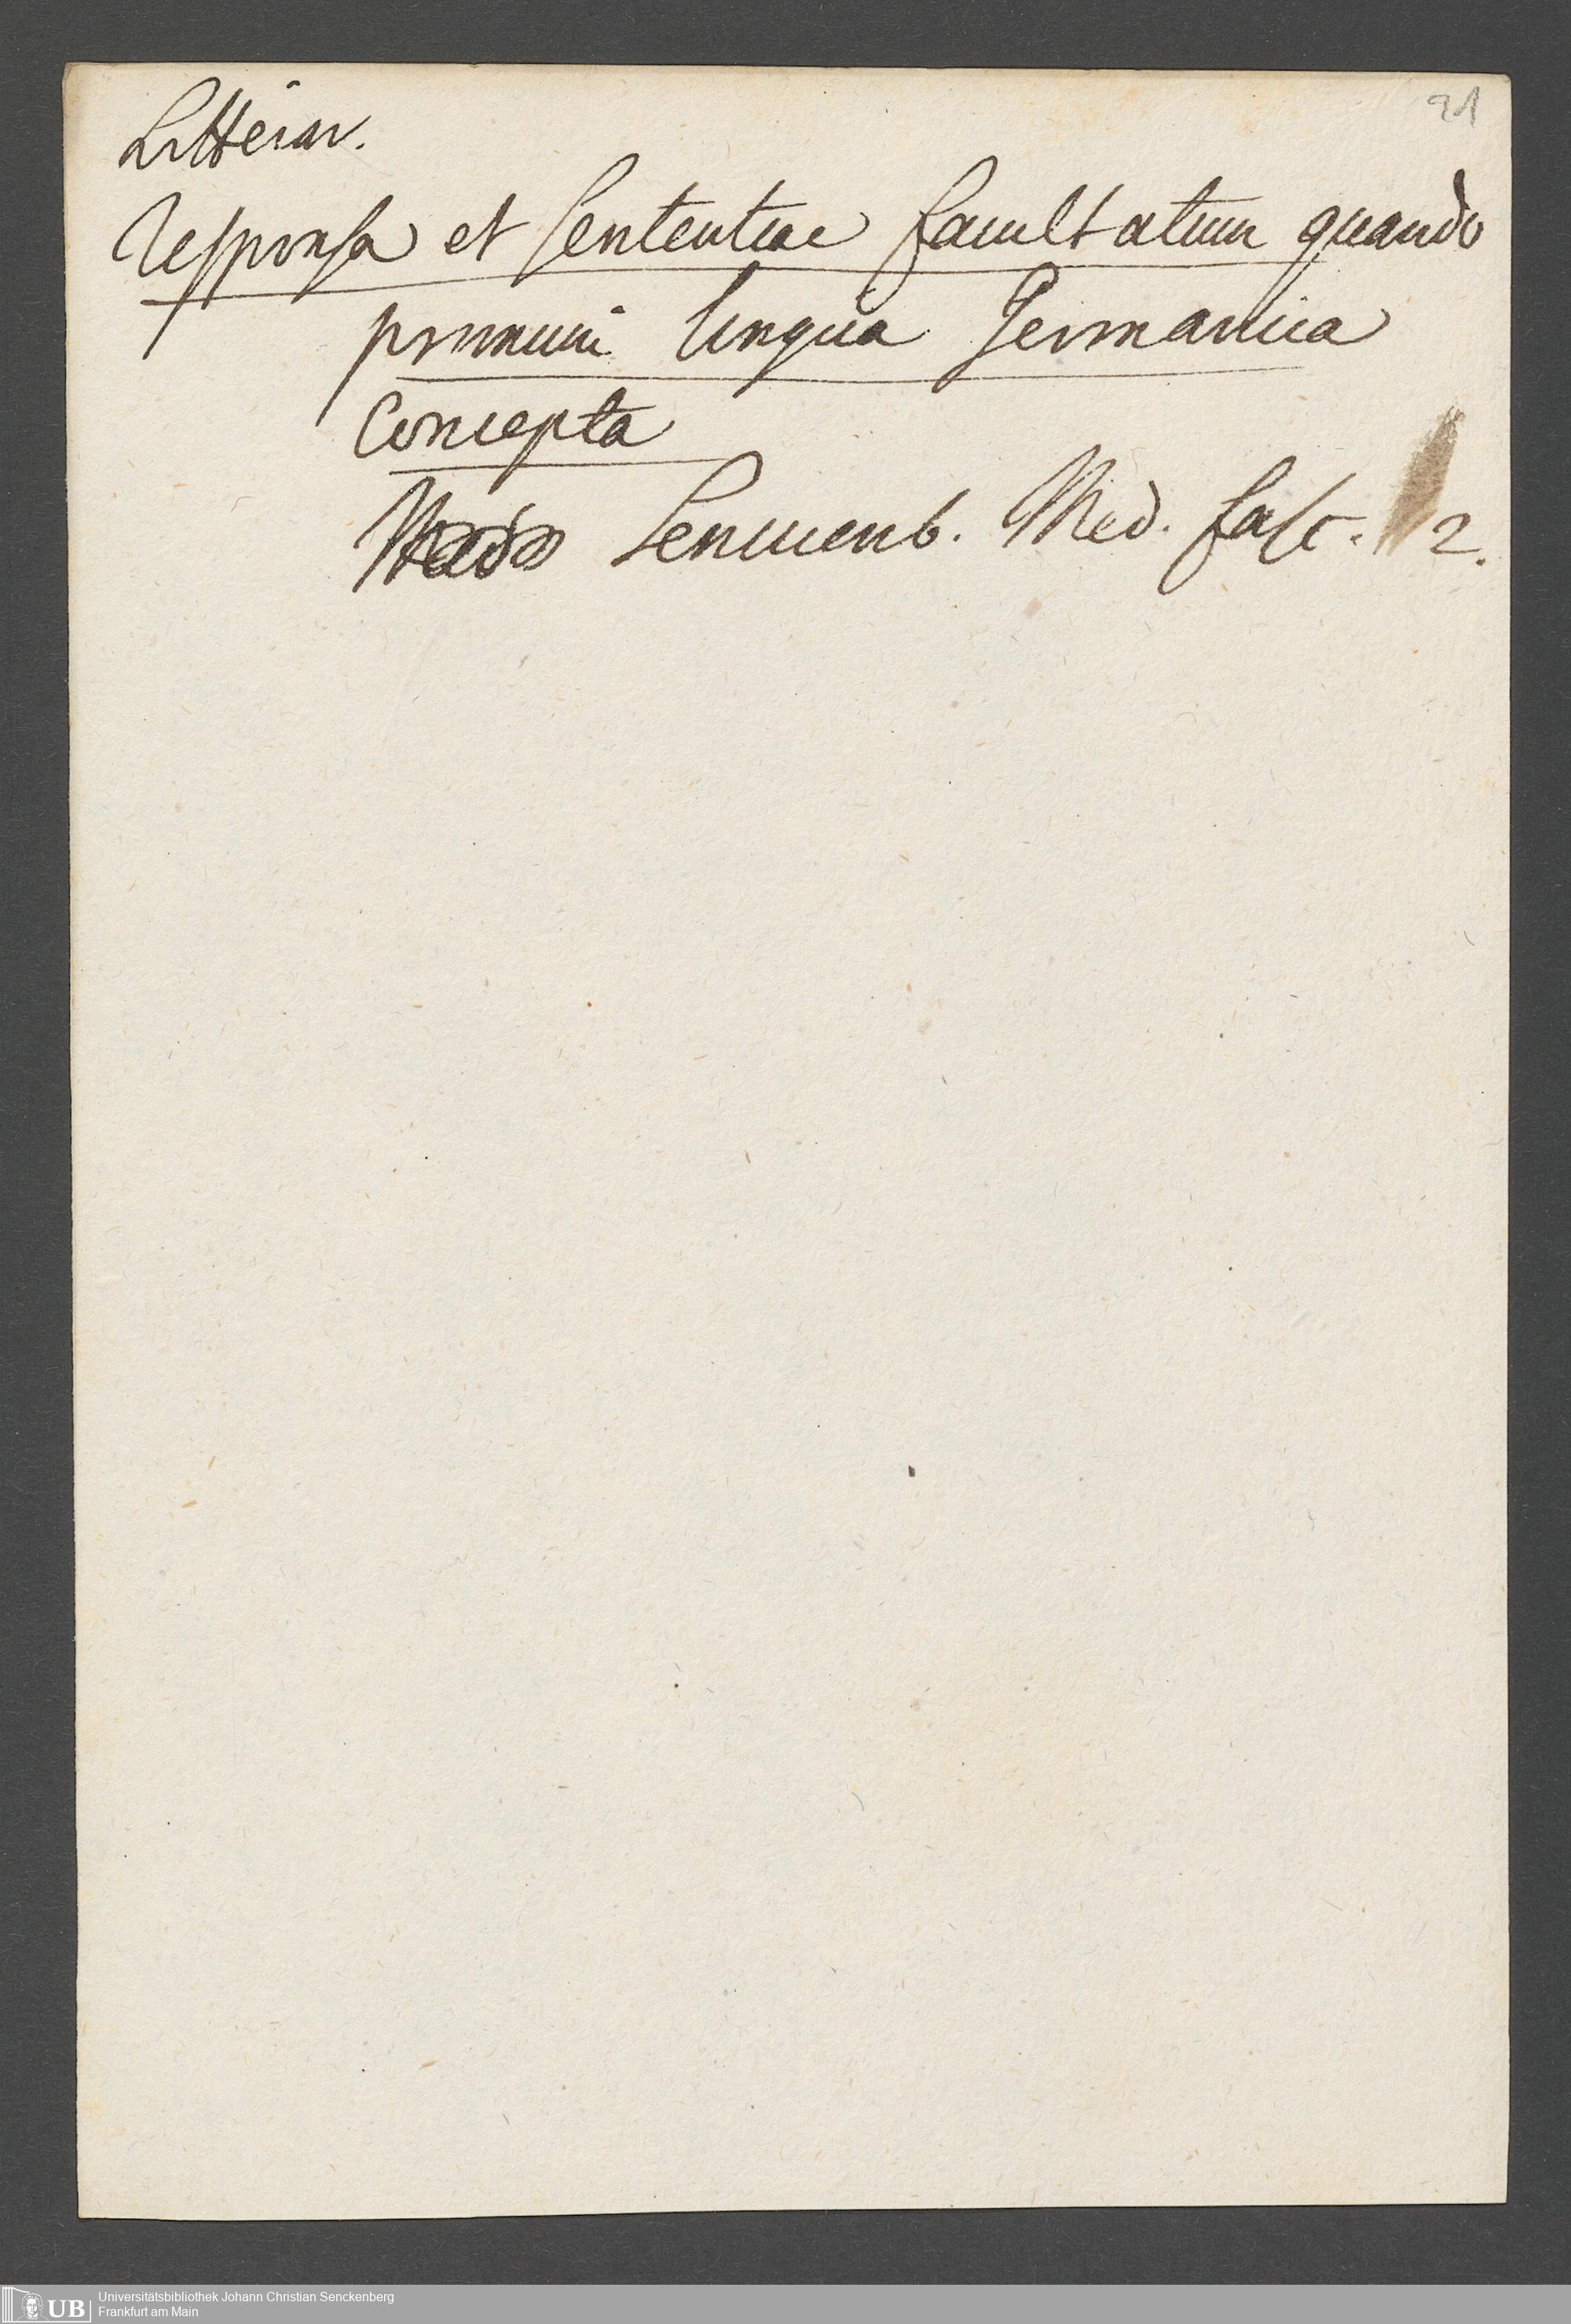 21
Litterar.
Responsa et Sententiae facultatum quando
primum lingua Germanica
Concepta
Senckenb. Med. fasc. 2.
UB Universitätsbibliothek Johann Christian Senckenberg
Frankfurt am Main